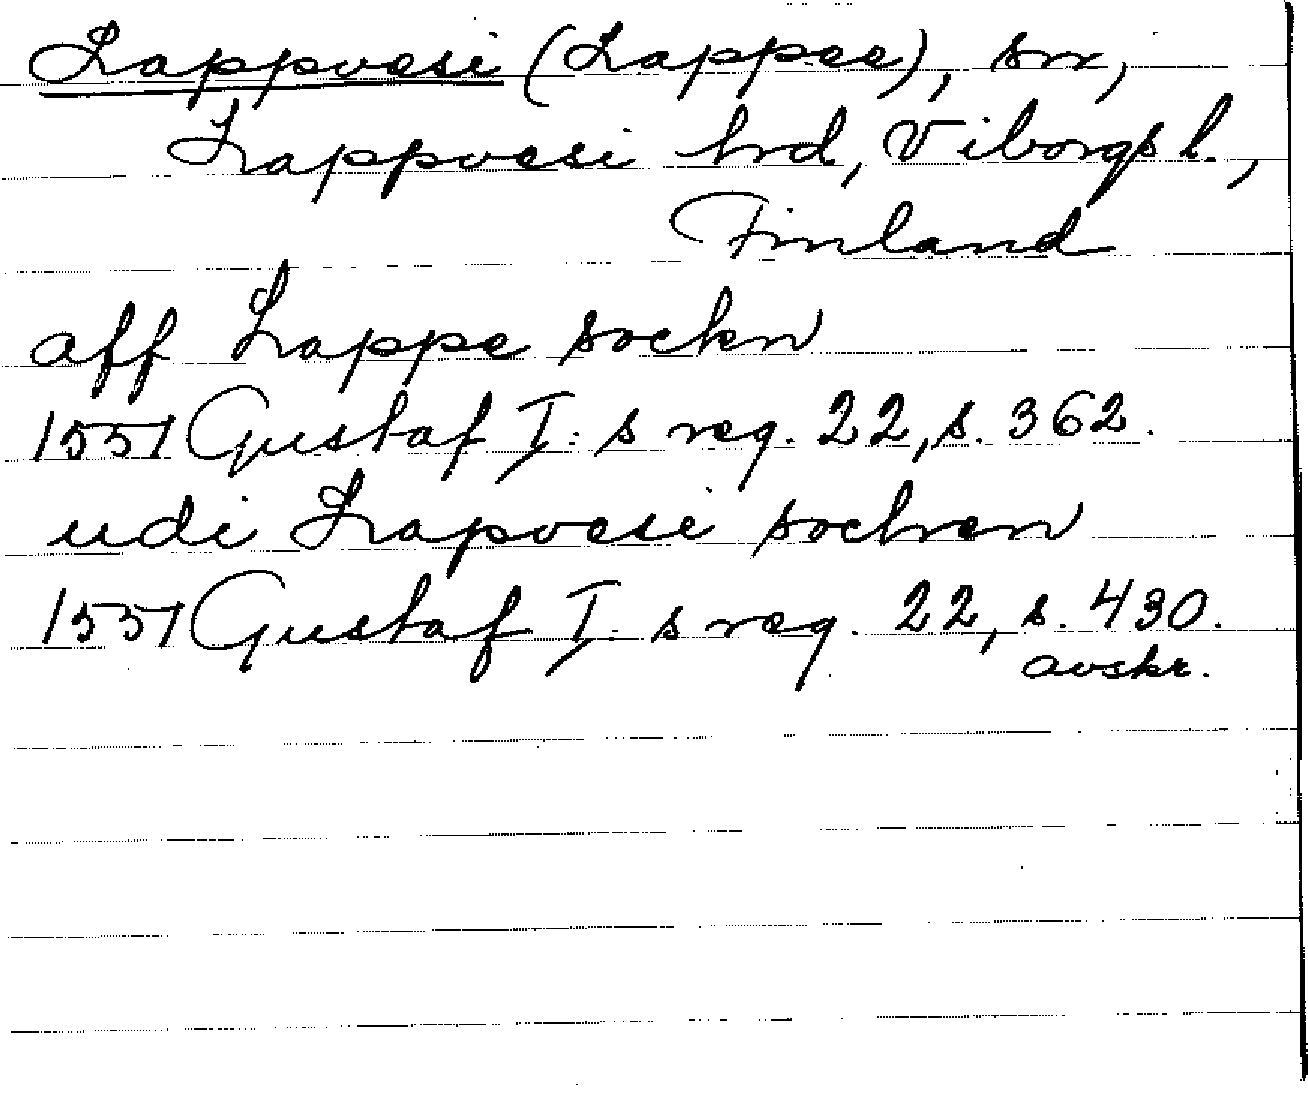 Lappvesi (Lappee), sn,
Lappvesi hrd, Viborgs l.,
Finland
aff Lappe sockn
1551 Gustaf I: s reg. 22, s. 362.
udi Lapvesi sochnen
1551 Gustaf I: s reg. 22, s. 430.
avskr.